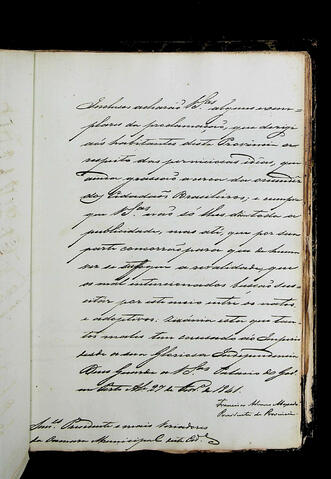 Inclusos acharão V.Sas alguns exem-
plares da proclamação, que dirigi
aos habitantes desta Provincia a
respeito das perniciosas idéas, que
a cerca da
dos Cidadãos Brasileiros; e cumpre
que V.Sas não só lhes deem toda a
publicidade, mas até, que por sua
parte concorrão para que de huma
vez se a rivalidade, que
os mal intencionados buscão sus-
citar por este meio entre os natos
e adoptivos: rivalidade esta que tan-
tos males tem causado ao Imperio
desde a sua Gloriosa Independencia
Deos Guarde a V.Sas Palacio do Go-
verno 27 de 1841.
Francisco
Presidente da Provincia
Snr.es Presidente e mais Vereadores
da Camara Municipal desta Cid.e